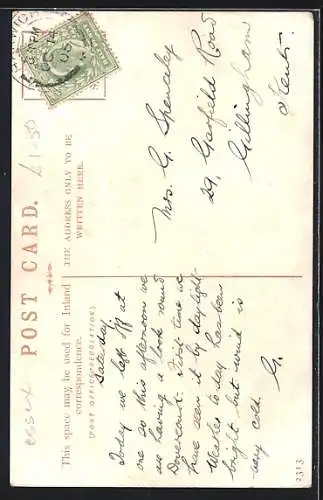 POST CARD.
This space may be used for Inland
correspondence.
(POST OFFICE REGULATION)
THE ADDRESS ONLY TO BE
WRITTEN HERE.
essex
£1-50
Saturday.
Today we left off at
one so this afternoon we
are having a look round
Dovercourt. First time we
have seen it by daylight
Weather to day has been
bright but wind is
very cold. G.
Mrs. G. Spenceley
29, Garfield Road
Gillingham
Kent.
2313